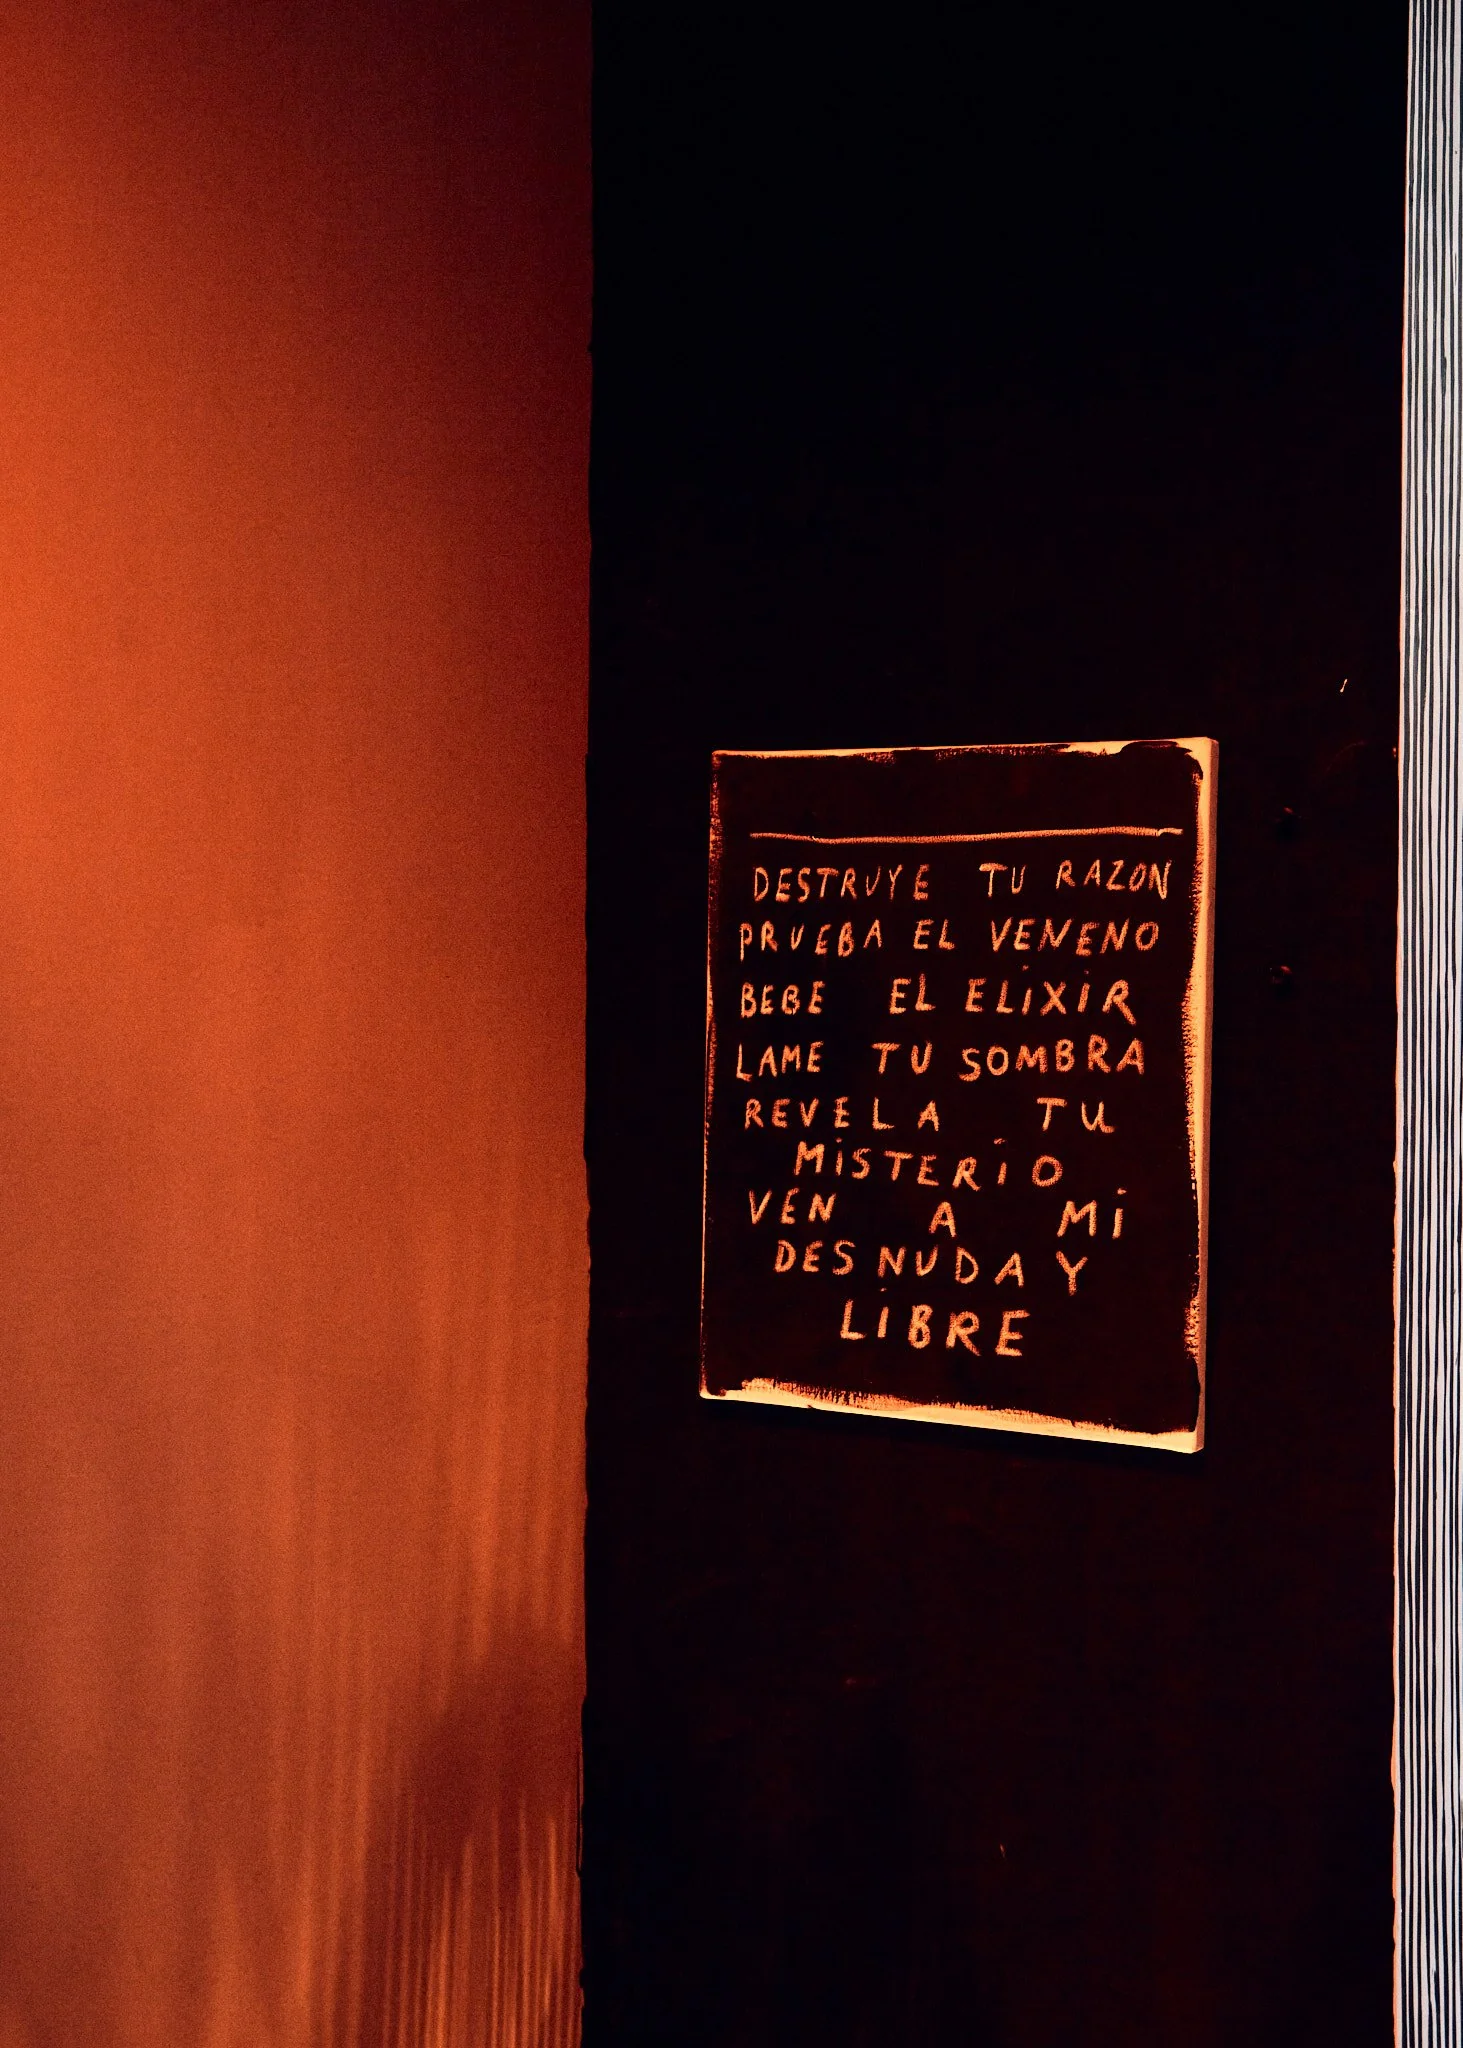 DESTRUYE TU RAZON
PRUEBA EL VENENO
BEBE EL ELIXIR
LAME TU SOMBRA
REVELA TU
MISTERIO
VEN A MI
DESNUDA Y
LIBRE